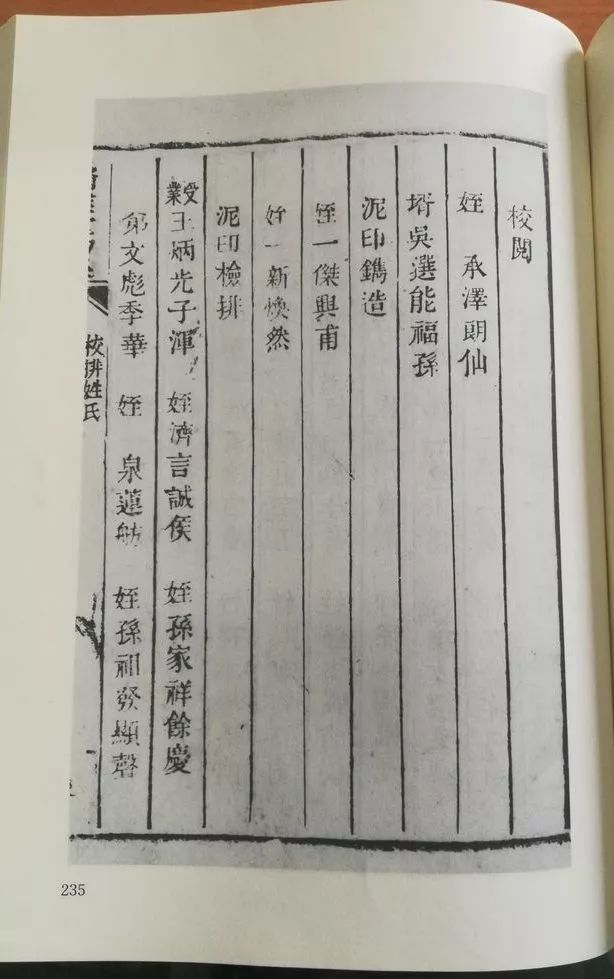 校閲
姪 承澤朗仙
壻吳選能福孫
泥印鐫造
姪一傑興甫
姪一新煥然
泥印檢排
受業王炳光子渾 姪濟言誠侯 姪孫家祥餘慶
弟文彪季華 姪 泉蓮舫 姪孫祖發顯聲
校排姓氏
235